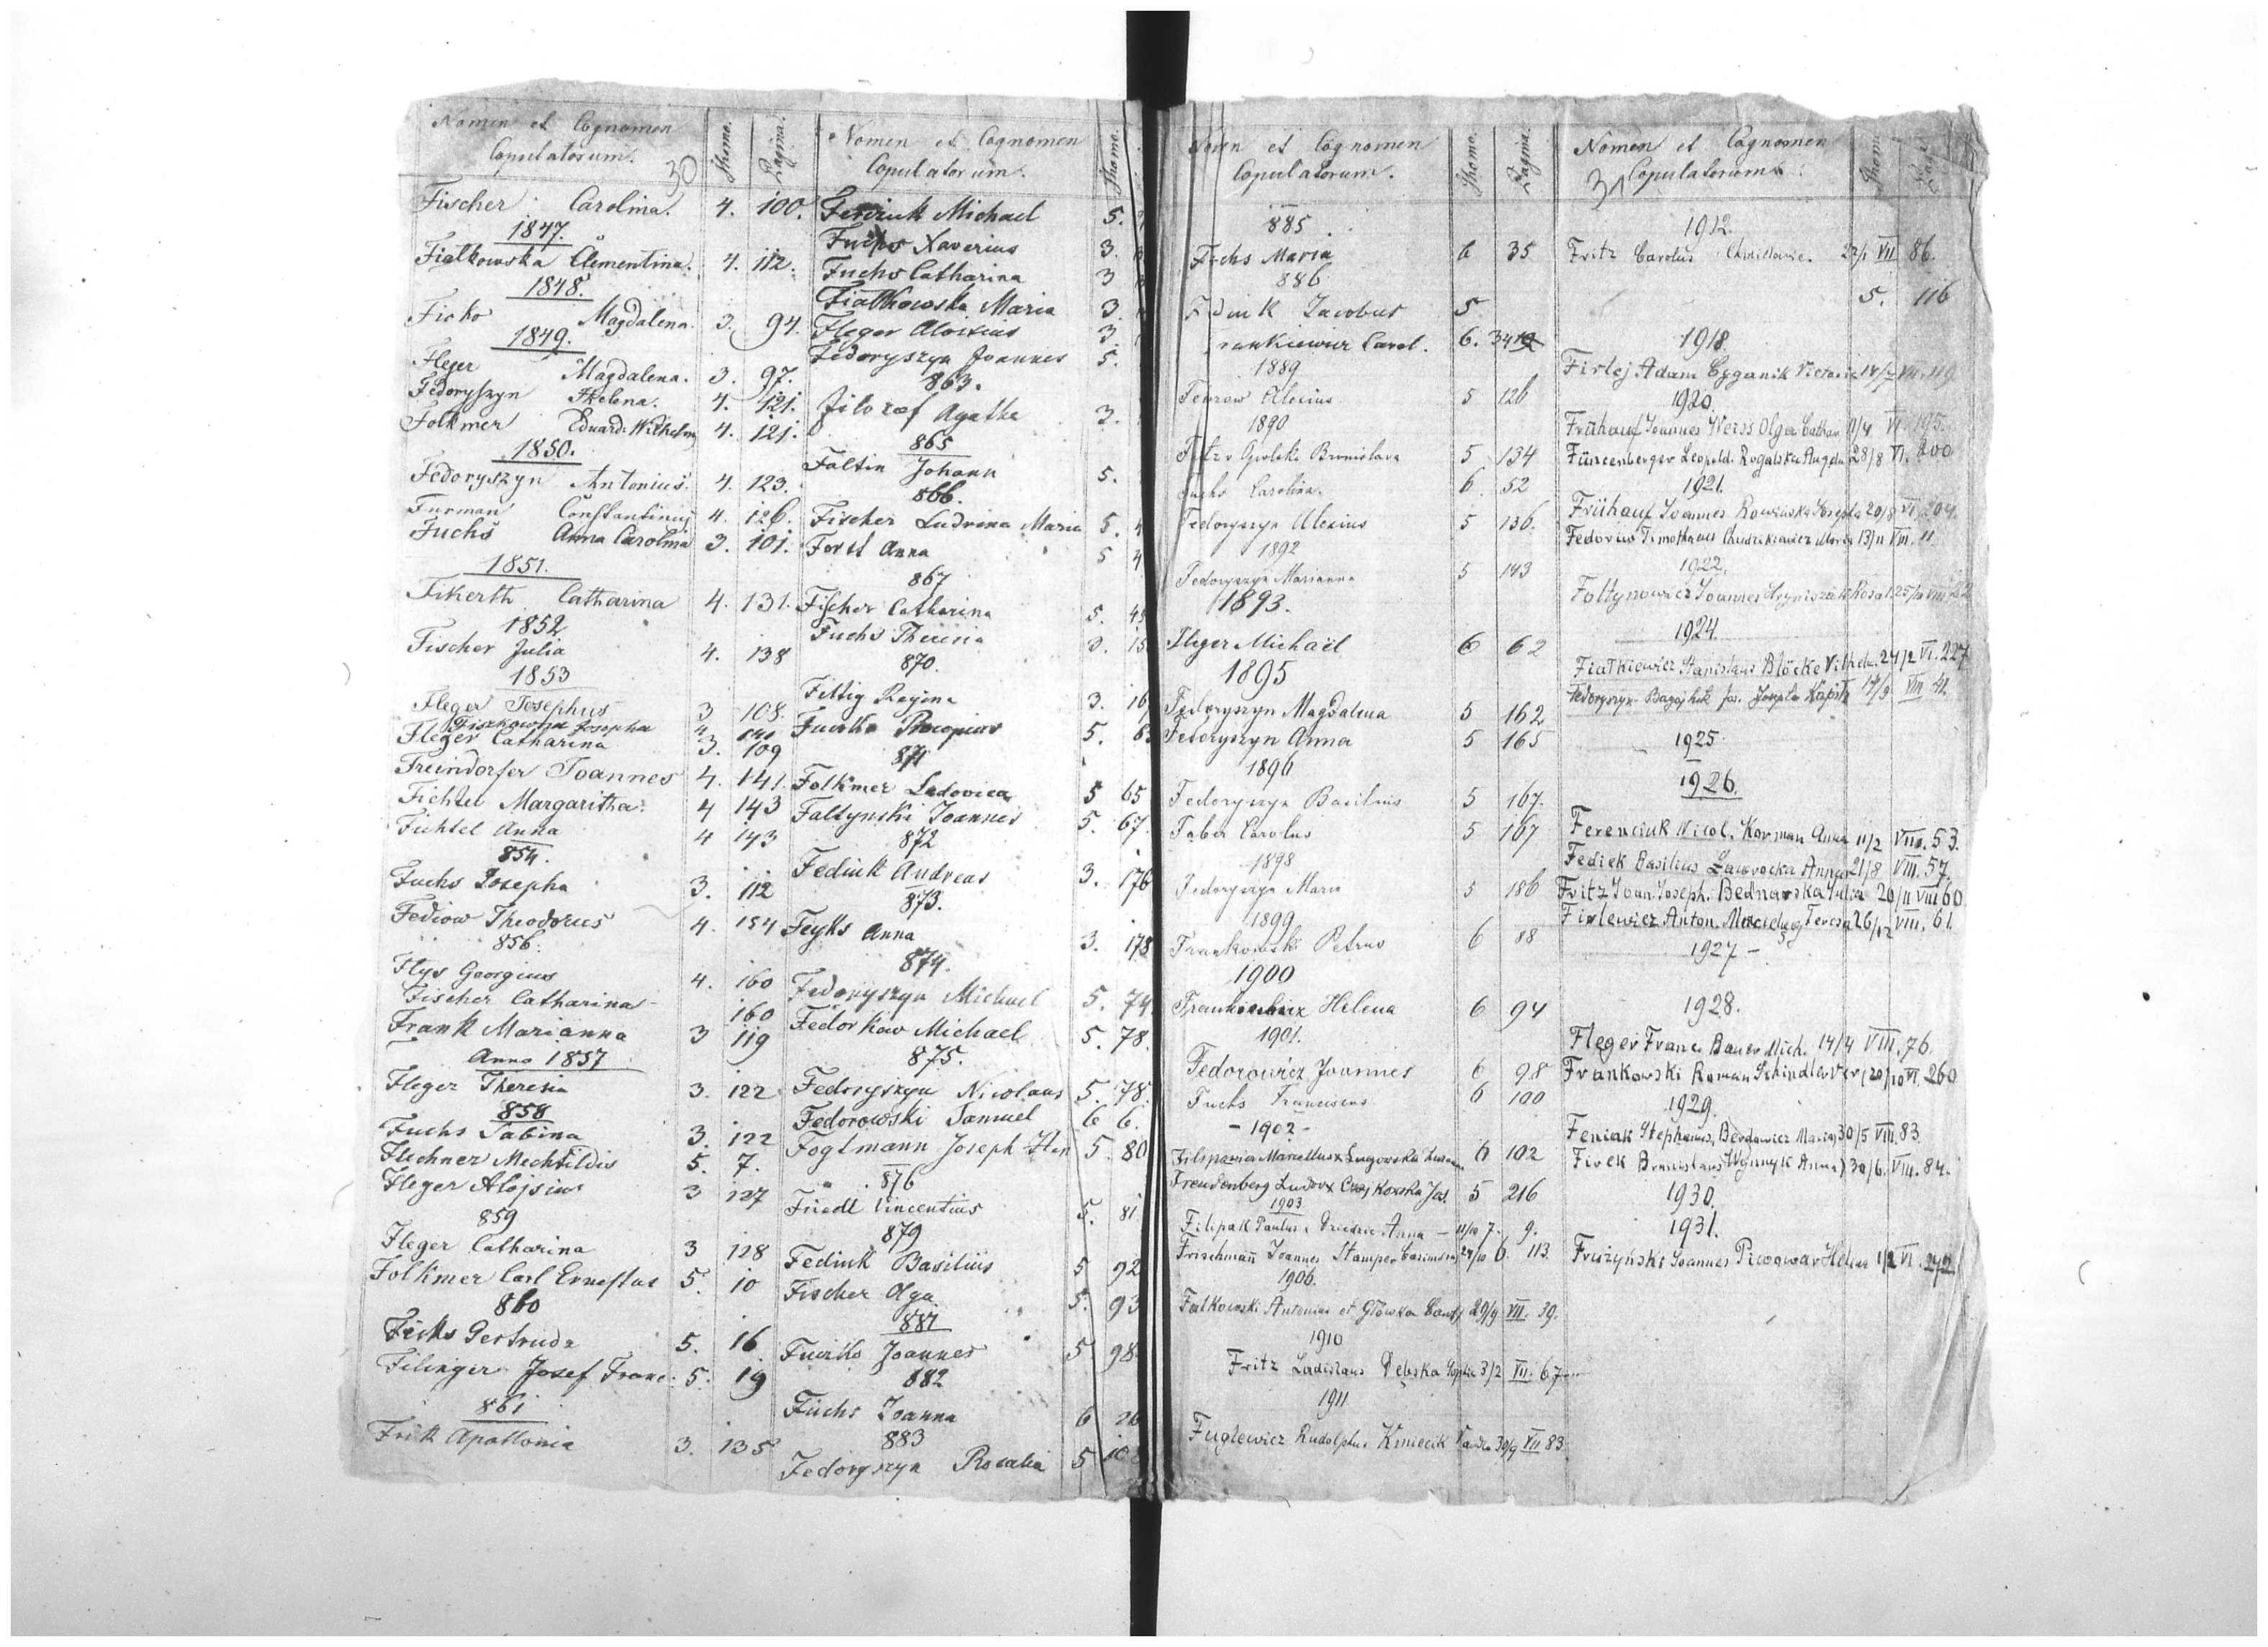 Nomen et Cognomen
Copulatorum.
30
Thomo.
Pagina.
Fischer Carolina. 4. 100.
1847.
Fialkowska Clementina. 4. 112.
1848.
Ficko Magdalena. 3. 94.
1849.
Fleger Magdalena. 3. 97.
Fedoryszyn Helena. 4. 121.
Folkmer Eduard: Wilhelm 4. 121.
1850.
Fedoryszyn Antonius. 4. 123.
Furman Constantinus 4. 126.
Fuchs Anna Carolina 3. 101.
1851.
Fikerth Catharina 4. 131.
1852
Fischer Julia 4. 138
1853
Fleger Josephus 3 108.
Fiszkowna Josepha 4 141
Fleger Catharina 3. 109
Freindorfer Joannes 4. 141.
Fichtel Margaritha. 4 143
Fichtel Anna 4 143
854.
Fuchs Josepha 3. 112
Fediow Theodorus 4. 154
856.
Flys Georgius 4. 160
Fischer Catharina 160
Frank Marianna 3 119
Anno 1857
Fleger Theresia 3. 122
858
Fuchs Sabina 3. 122
Flechner Mechtildis 5. 7.
Fleger Alojsius 3 127
859
Fleger Catharina 3 128
Folkmer Carl Ernestus 5. 10
860
Ficks Gertruda 5. 16
Filinger Josef Franc. 5. 19
861
Frik Apollonia 3. 135
Nomen et Cognomen
Copulatorum.
Thomo.
Ferciuk Michael 5.
Xaverius 3.
Fuchs Catharina 3
Fiałkowska Maria 3.
Fleger Aloisius 3.
Fedoryszyn Joannes 5.
863.
Filozof Agatha 3.
865
Faltin Johann 5.
866.
Fischer Ludvina Maria 5. 4
Forst Anna 5 4
867
Fischer Catharina 5. 49
Fuchs Theresia 3. 15
870.
Fittig Regina 3. 16
Procopius 5. 63
871
Folkmer Ludovica 5 65
Faltynski Joannes 5. 67
872
Fediuk Andreas 3. 176
873.
Feyks Anna 3. 178
874.
Fedoryszyn Michael 5. 74
Fedorkow Michael 5. 78.
875.
Fedoryszyn Nicolaus 5. 78.
Fedorowski Samuel 6 6.
Foglmann Joseph 5. 80
876
Friedl Vincentius 5. 81
879
Fediuk Basilius 5 92
Fischer Olga 5. 93
881
Joannes 5 98
882
Fuchs Joanna 6 26
883
Fedoryszyn Rosalia 5 108
Nomen et Cognomen
Copulatorum.
Thomo.
Pagina.
885
Fuchs Maria 6 35
886
Fediuk Jacobus 5
Frankiewicz Carol. 6. 34
1889
Alexius 5 126
1890
Bronislava 5 134
Fuchs Carolina. 6 52
Fedoryszyn Alexius 5 136.
1892
Fedoryszyn Marianna 5 143
1893.
Fleger Michaël 6 62
1895
Fedoryszyn Magdalena 5 162
Fedoryszyn Anna 5 165
1896
Fedoryszyn Basilius 5 167.
Faber Carolus 5 167
1898
Fedoryszyn Maria 5 186
1899
Frankowski Petrus 6 88
1900
Frankiewicz Helena 6 94
1901.
Fedorowicz Joannes 6 98
Fuchs Franciscus 6 100
- 1902 -
Marcellus 6 102
Freudenberg Ludov x Czajkowska Jos. 5 216
1903
Filipak Paulus Anna - 11/10 7. 9.
Frischmann Joannes Stamper 24/10 6. 113.
1906.
Falkowski Antonius et Głowka 29/9 VII. 39.
1910
Fritz Ladislaus Dębska Sophia 3/2 VII. 67
1911
Fuglewicz Rudolphus Kmiecik 30/9 VII 83
Nomen et Cognomen
Copulatorum.
31
Thomo
Pagina
1912.
Fritz Carolus 22/1 VII 86.
5. 116
1918.
Firlej Adam Cyganik Victoria VII. 119
1920.
Frühauf Joannes Weiss Olga 11/4 VI. 195.
Fürcenberger Leopold. Rogalska Angela 28/8 VI. 200
1921.
Frühauf Joannes Josepha 20/8 VI 204
Fedorów Timothaeus Maria 13/11 VIII. 11.
1922.
Foltynowicz Joannes Rosa 25/10 VIII 22
1924.
Fiałkiewicz Stanislaus Blöcke Vilhelm. 24/2 VI. 227
Fedoryszyn Jos. Josepha 14/9 VIII 41.
1925.
1926.
Ferenciuk Nicol. Korman Anna 11/2 VIII. 53.
Fediek Basilius Zaworocka Anna 21/8 VIII. 57.
Fritz Joan. Joseph. Bednarska Julia 20/11 VIII 60
Firlewicz Anton. Teresa 26/12 VIII. 61.
1927 -
1928.
Fleger Franc. Bauer Mich. 14/4 VIII. 76.
Frankowski Roman Schindler Ver. 20/10 VI. 260
1929.
Feniak Stephanus, Berdowicz Maria 30/5 VIII. 83
Firek Bronislaus Wynnyk Anna 30/6. VIII. 84.
1930.
1931.
Fruzyński Joannes Piwowar Helena 1/2 VI. 272